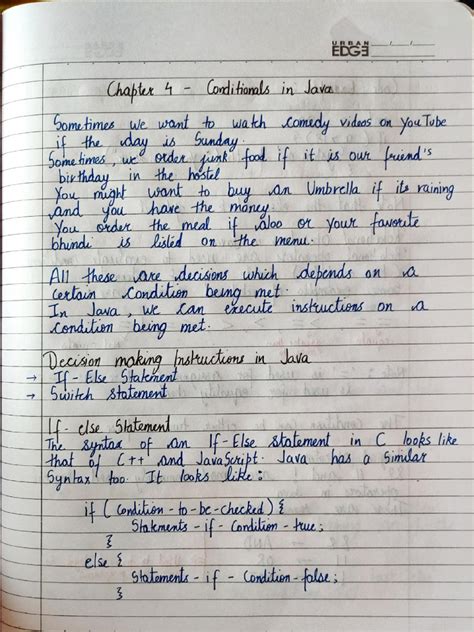 URBAN
EDGE __/__/__
Chapter 4 - Conditionals in Java
Sometimes we want to watch comedy videos on YouTube
if the day is Sunday.
Sometimes, we order junk food if it is our friend's
birthday in the hostel
You might want to buy an Umbrella if its raining
and you have the money.
You order the meal if aloo or your favorite
bhindi is listed on the menu.
All these are decisions which depends on a
certain Condition being met.
In Java, we can execute instructions on a
condition being met.
Decision making Instructions in Java
→ If - Else Statement
→ Switch statement
If - else Statement
The syntax of an If-Else statement in C looks like
that of C++ and JavaScript. Java has a Similar
Syntax too. It looks like:
if ( Condition - to - be - checked ) {
Statements - if - Condition - true;
}
else {
Statements - if - Condition - false;
}